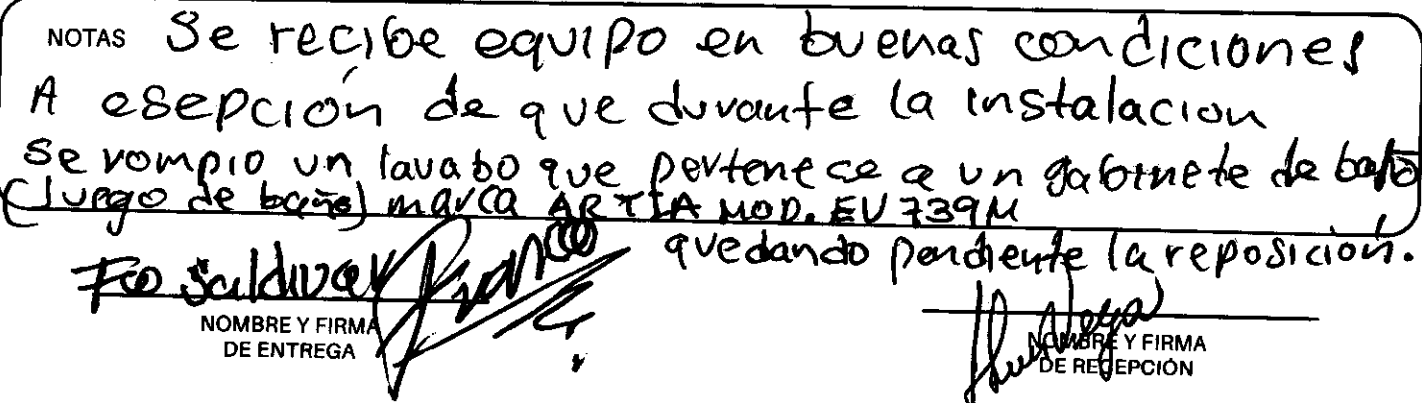 NOTAS Se recibe equipo en buenas condiciones
A esepción de que durante la instalacion
se rompio un lavabo que pertenece a un gabinete de baño
(Juego de baño) marca ARTIA MOD. EV739M
quedando pendiente la reposición.
Fco Saldivar
NOMBRE Y FIRMA
DE ENTREGA
NOMBRE Y FIRMA
DE RECEPCIÓN